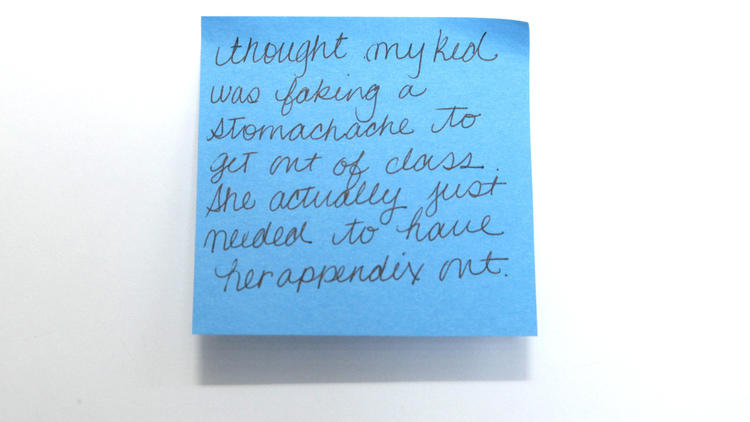 thought my kid
was faking a
stomachache to
get out of class.
She actually just
needed to have
her appendix out.